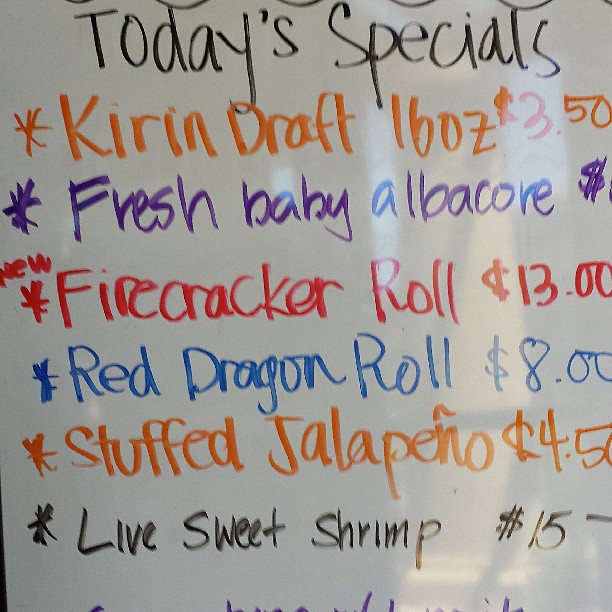 Today's Specials
* Kirin Draft 16oz $3.50
* Fresh baby albacore $
new
* Firecracker Roll $13.00
* Red Dragon Roll $8.00
* Stuffed Jalapeño $4.50
* Live Sweet Shrimp $15-